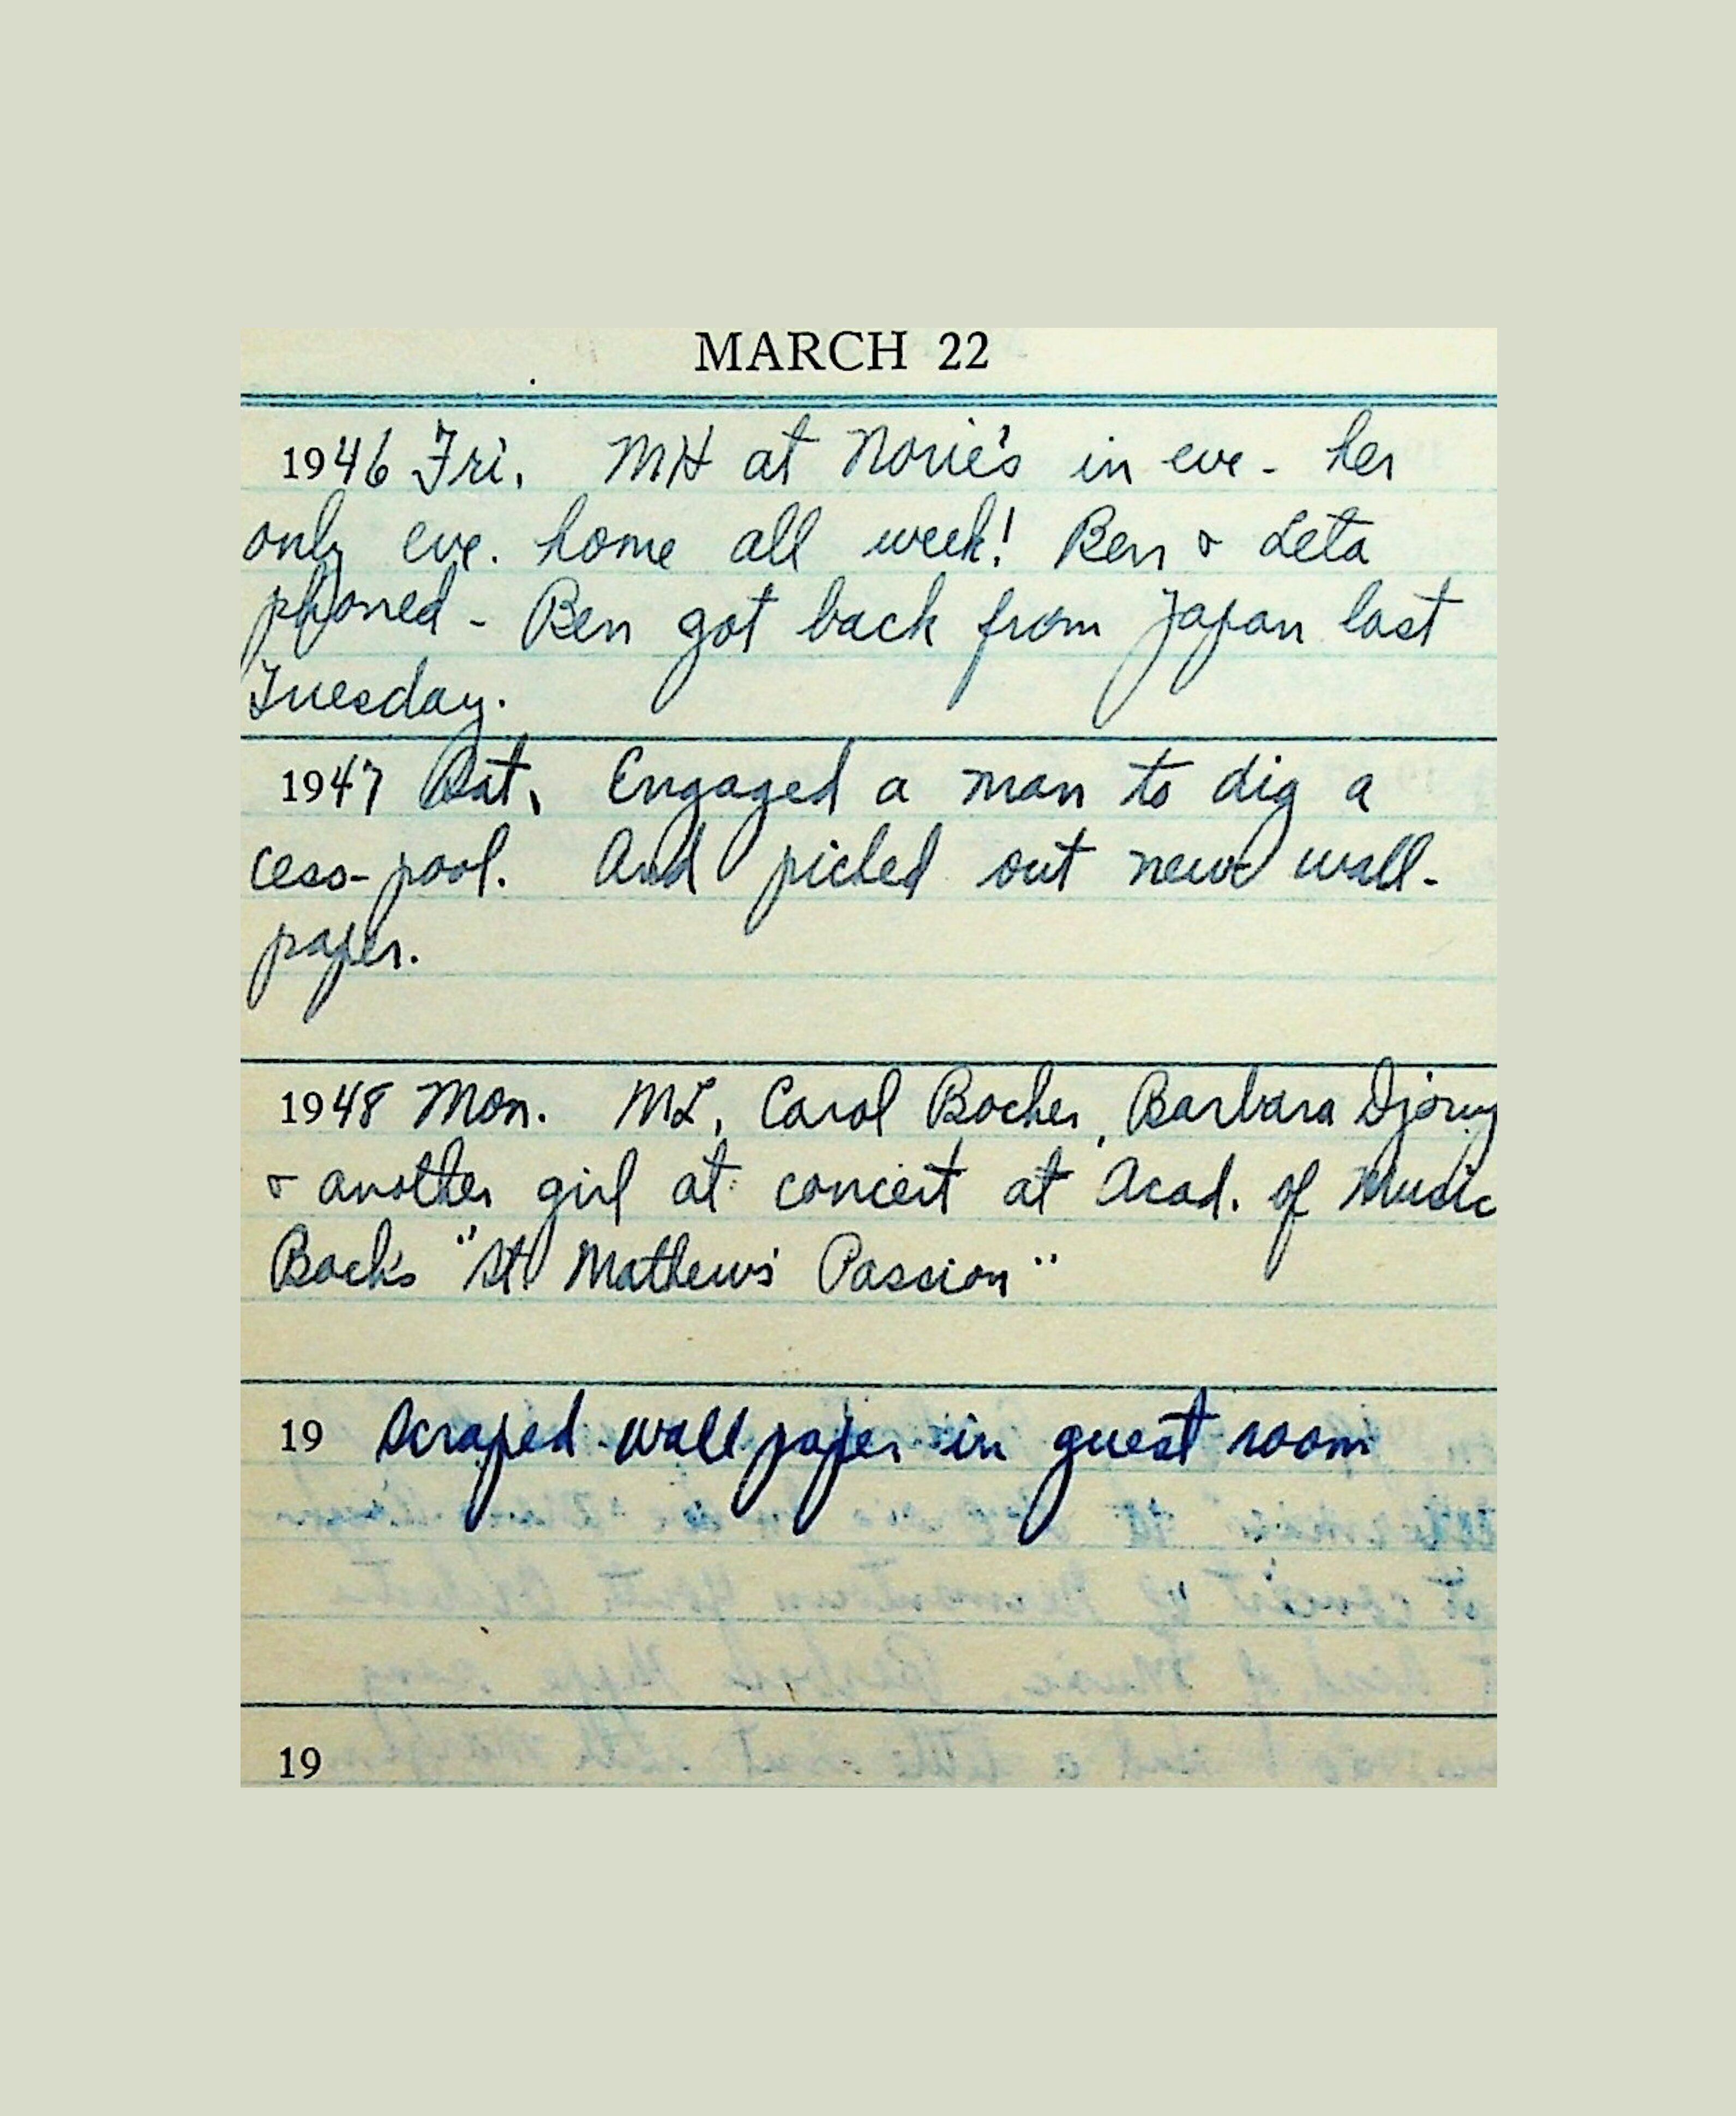 MARCH 22
1946 Fri. MH at Norie's in eve - her
only eve. home all week! Ben & Leta
phoned - Ben got back from Japan last
Tuesday.
1947 Sat. Engaged a man to dig a
cess-pool. And picked out new wall-
paper.
1948 Mon. ML, Carol Bocher, Barbara
& another girl at concert at Acad. of Music
Bach's "St. Mathew's Passion"
19 Scraped wallpaper in guest room
19